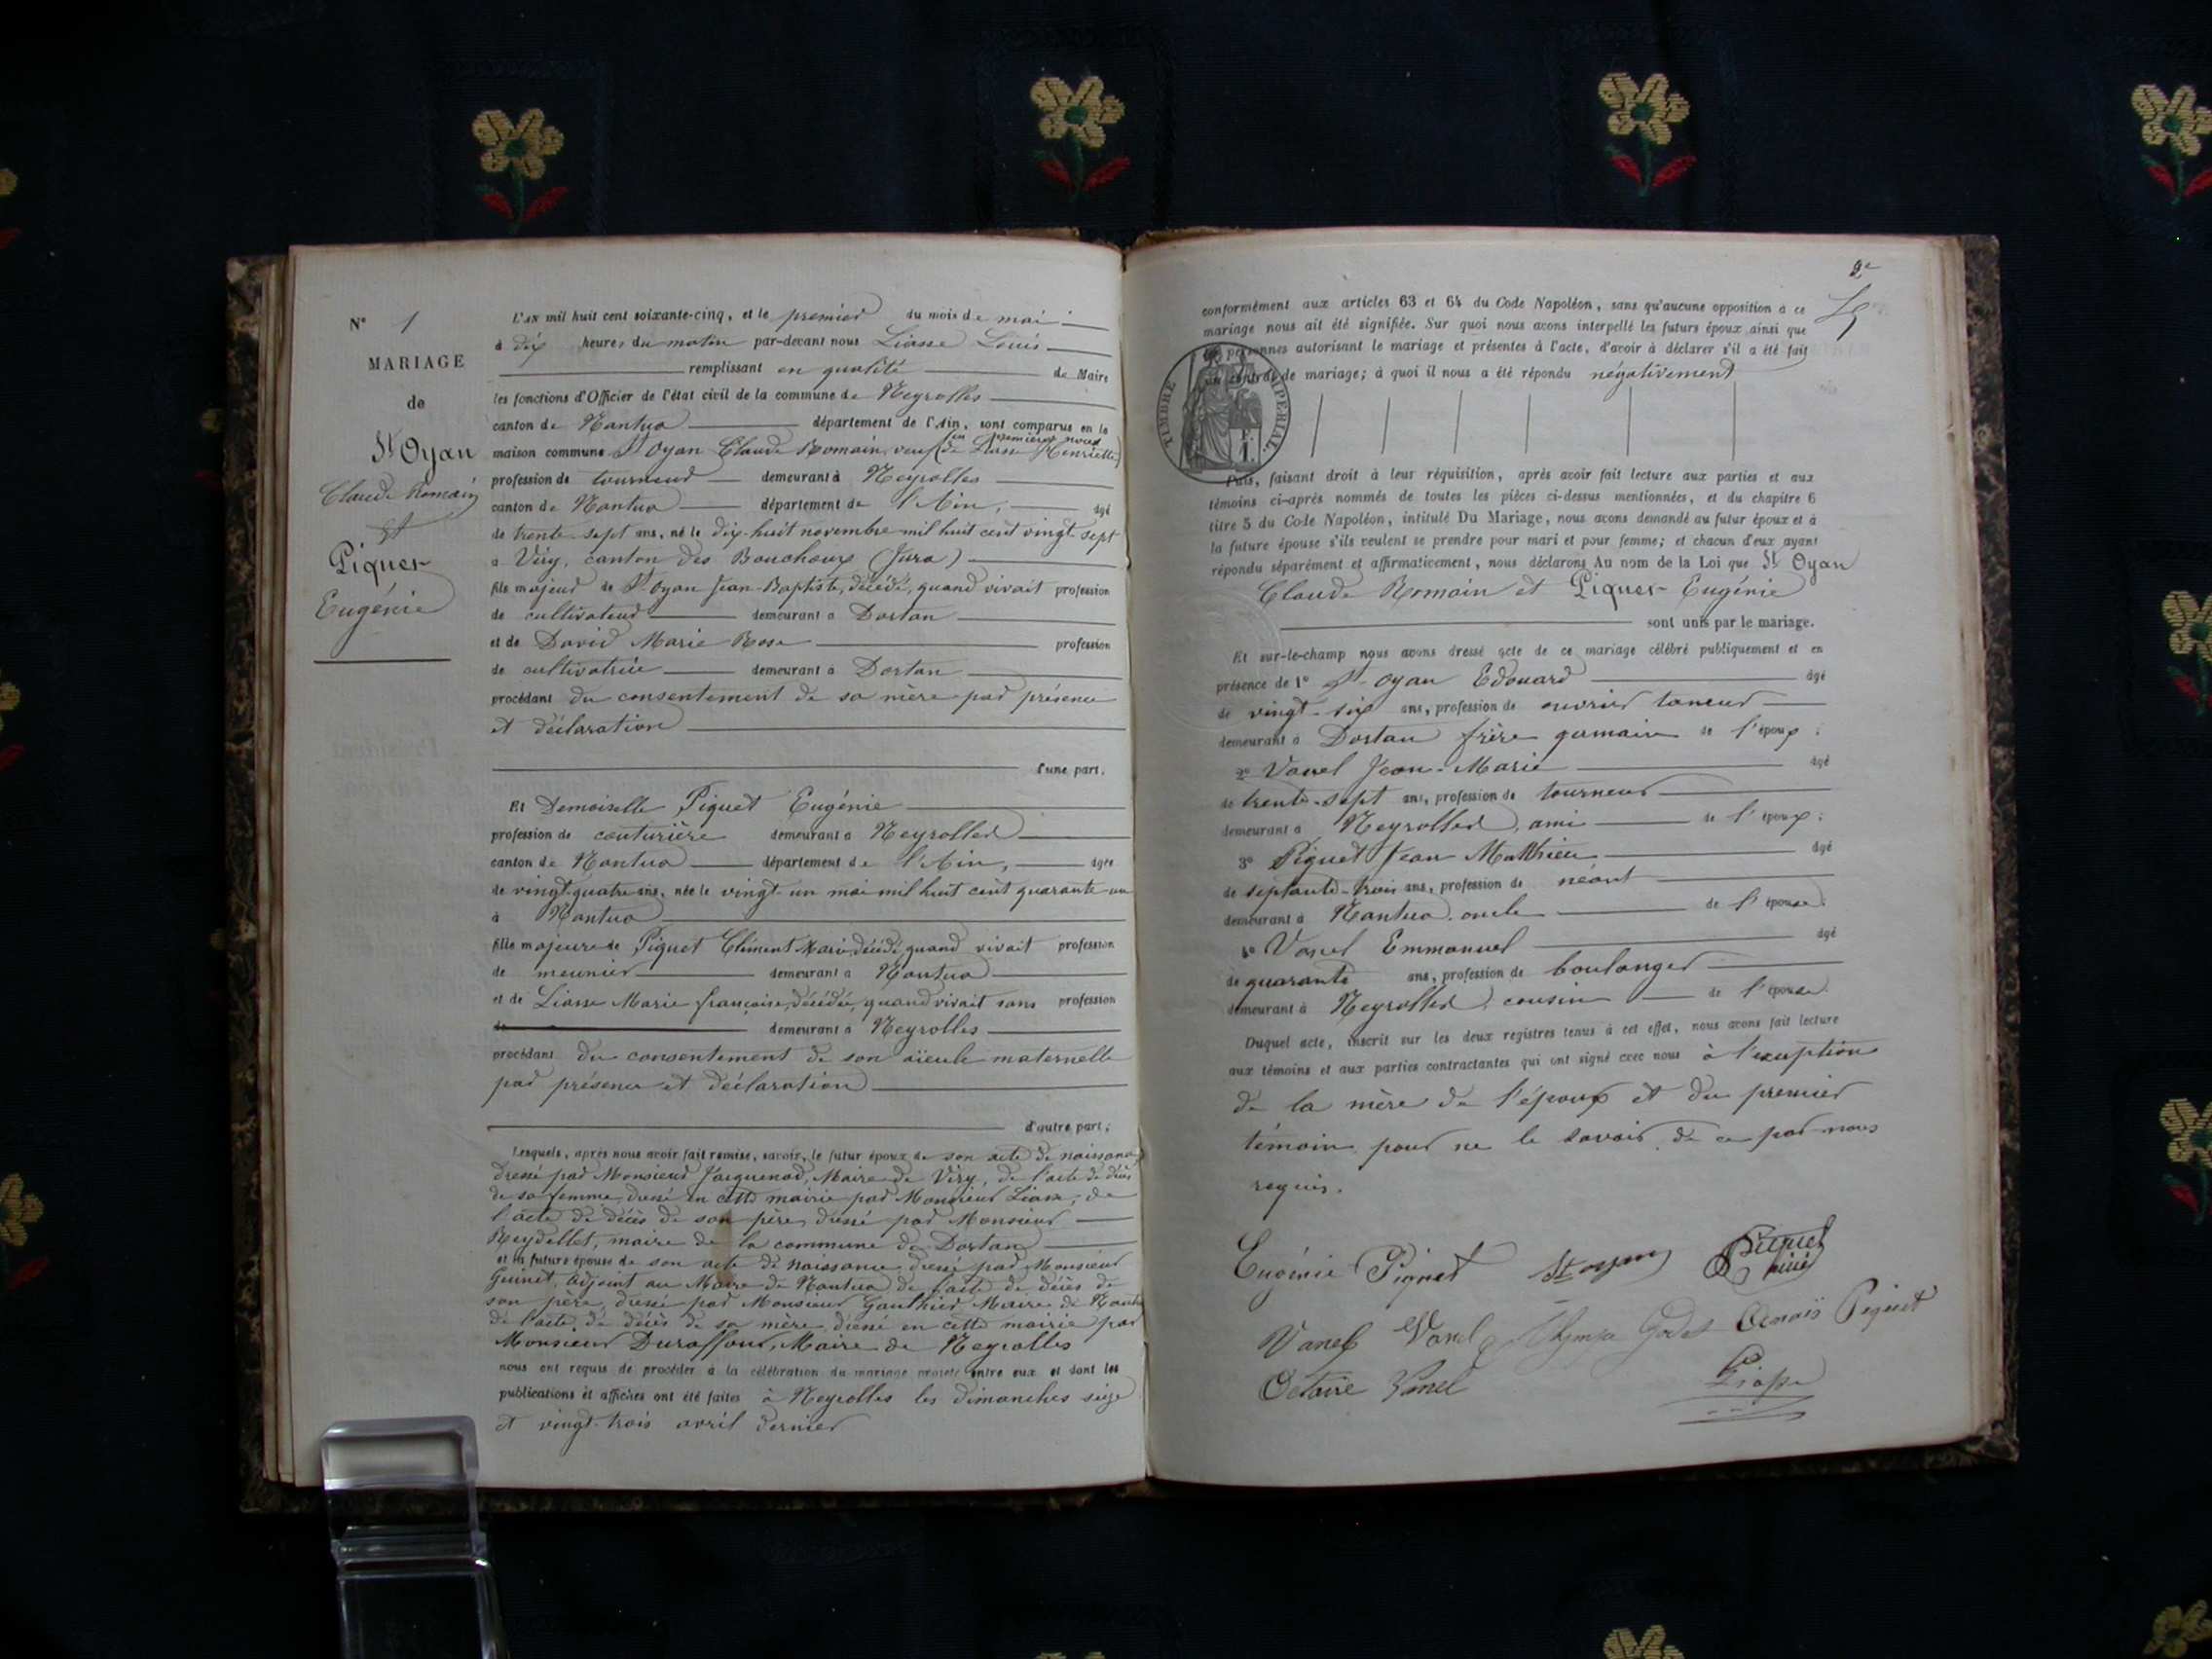 N° 1
MARIAGE
de
St Oyan
Claude Romain
Et
Piquet
Eugénie
L'AN mil huit cent soixante-cinq, et le premier du mois de mai
à dix heures du matin par-devant nous Liasse Louis
remplissant en qualité de Maire
les fonctions d'Officier de l'état civil de la commune de Neyrolles
canton de Nantua département de l'Ain, sont comparus en la
maison commune St Oyan Claude Romain, veuf (en premières noces de Liasse Henriette)
profession de tourneur demeurant à Neyrolles
canton de Nantua département de l'Ain, âgé
de trente-sept ans, né le dix-huit novembre mil huit cent vingt-sept
à Viry, canton des Bouchoux (Jura)
fils majeur de St Oyan Jean-Baptiste, décédé, quand vivait profession
de cultivateur demeurant à Dortan
et de David Marie Rose profession
de cultivatrice demeurant à Dortan
procédant du consentement de sa mère par présence
et déclaration
d'une part,
Et Demoiselle Piquet Eugénie
profession de couturière demeurant à Neyrolles
canton de Nantua département de l'Ain, âgée
de vingt-quatre ans, née le vingt-un mai mil huit cent quarante-un
à Nantua
fille majeure de Piquet Clément Marie, décédé, quand vivait profession
de meunier demeurant à Nantua
et de Liasse Marie françoise, décédée, quand vivait sans profession
de demeurant à Neyrolles
procédant du consentement de son aïeule maternelle
par présence et déclaration
d'autre part;
Lesquels, après nous avoir fait remise, savoir, le futur époux de son acte de naissance
dressé par Monsieur Jacquenod, Maire de Viry, de l'acte de décès
de sa femme, dressé en cette mairie par Monsieur Liasse, de
l'acte de décès de son père, dressé par Monsieur
Reydellet, maire de la commune de Dortan
et la future épouse de son acte de naissance dressé par Monsieur
Guinet, adjoint au Maire de Nantua, de l'acte de décès de
son père, dressé par Monsieur Gauthier Maire de Nantua
de l'acte de décès de sa mère, dressé en cette mairie par
Monsieur Duraffour, Maire de Neyrolles
nous ont requis de procéder à la célébration du mariage projeté entre eux et dont les
publications et affiches ont été faites à Neyrolles les dimanches seize
et vingt-trois avril dernier
2e
conformément aux articles 63 et 64 du Code Napoléon, sans qu'aucune opposition à ce
mariage nous ait été signifiée. Sur quoi nous avons interpellé les futurs époux ainsi que
les personnes autorisant le mariage et présentes à l'acte, d'avoir à déclarer s'il a été fait
un contrat de mariage; à quoi il nous a été répondu négativement
TIMBRE IMPERIAL.
F. 1.
Puis, faisant droit à leur réquisition, après avoir fait lecture aux parties et aux
témoins ci-après nommés de toutes les pièces ci-dessus mentionnées, et du chapitre 6
titre 5 du Code Napoléon, intitulé Du Mariage, nous avons demandé au futur époux et à
la future épouse s'ils veulent se prendre pour mari et pour femme; et chacun d'eux ayant
répondu séparément et affirmativement, nous déclarons Au nom de la Loi que St Oyan
Claude Romain et Piquet Eugénie
sont unis par le mariage.
Et sur-le-champ nous avons dressé acte de ce mariage célébré publiquement et en
présence de 1° St Oyan Edouard âgé
de vingt-six ans, profession de ouvrier tourneur
demeurant à Dortan frère germain de l'époux;
2° Vanel Jean-Marie âgé
de trente-sept ans, profession de tourneur
demeurant à Neyrolles, ami de l'époux;
3° Piquet Jean Matthieu âgé
de septante-trois ans, profession de néant
demeurant à Nantua oncle de l'épouse;
4° Vanel Emmanuel âgé
de quarante ans, profession de boulanger
demeurant à Neyrolles, cousin de l'épouse
Duquel acte, inscrit sur les deux registres tenus à cet effet, nous avons fait lecture
aux témoins et aux parties contractantes qui ont signé avec nous à l'exception
de la mère de l'époux et du premier
témoin pour ne le savoir de ce par nous
requis.
Eugénie Piquet St oyan Piquet
Vanel Vanel Godet Anaïs Piquet
Octavie Vanel Liasse